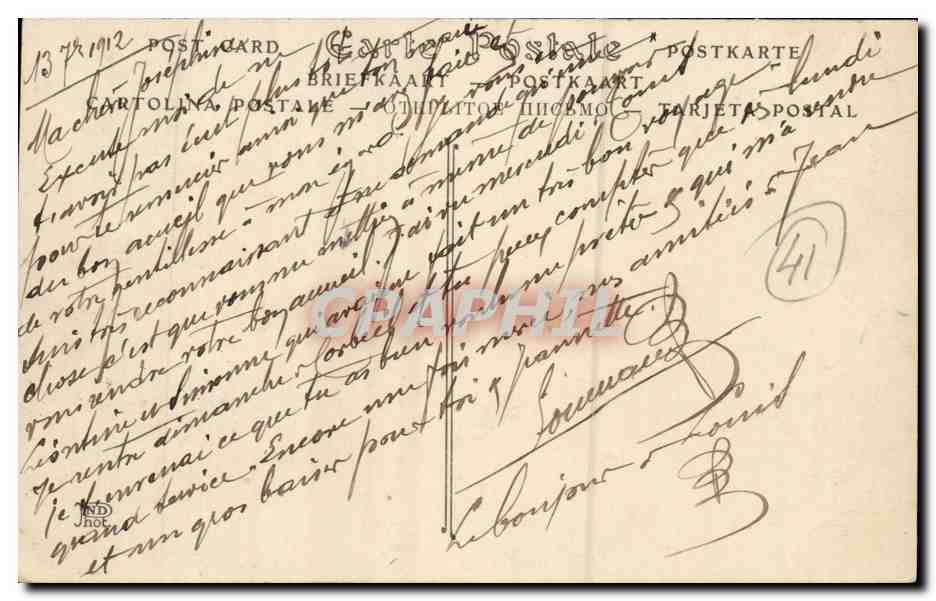 13 7re 1912
POST CARD Carte Postale POSTKARTE
BRIEFKAART - POSTKAART
CARTOLINA POSTALE - ОТКРЫТОЕ ПИСЬМО - TARJETA POSTAL
Ma chère Josephine
Excuse moi de ne
t'avoir pas écrit plus tôt
pour te remercier ainsi que ton mari
du bon accueil que vous m'avez fait et
de votre gentillesse à mon égard. Je vous en
suis très reconnaissant & ne demande qu'une
chose c'est que vous me mettiez à même de pouvoir
vous rendre votre bon accueil. J'ai vu mercredi Tonus
Léontine en bonne qui avaient fait un très bon voyage.
Je rentre dimanche à Corbeil & tu peux compter que lundi
je t'enverrai ce que tu as bien voulu me prêter & qui m'a rendu
grand service. Encore une fois merci, mes amitiés à Jean
et un gros baiser pour toi & Jeannette.
Le bonjour à Louis
41
ND
Phot
CPAPHIL